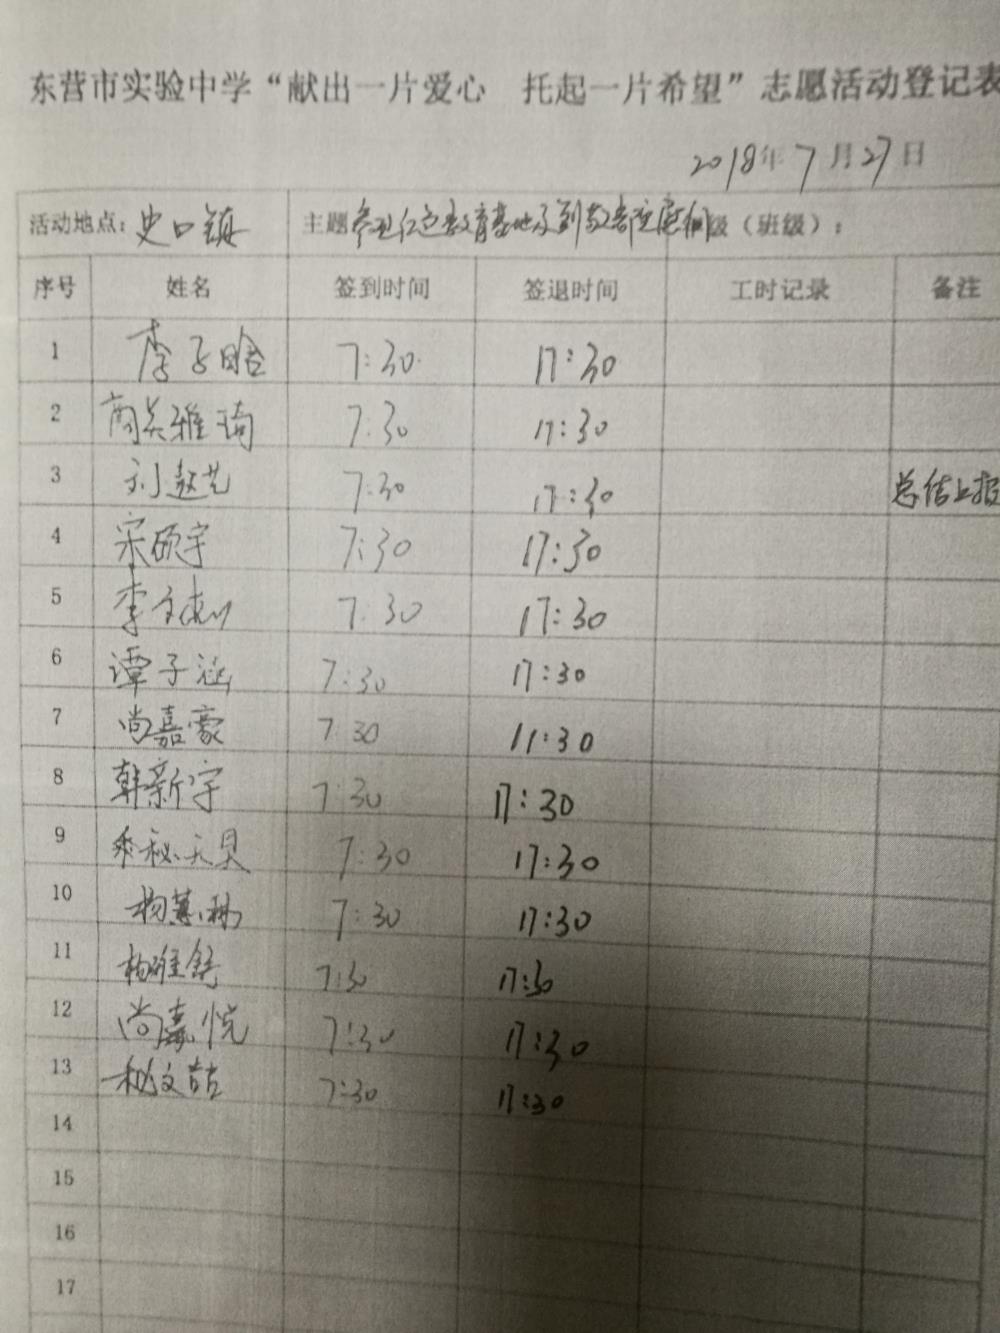 东营市实验中学“献出一片爱心 托起一片希望”志愿活动登记表
2018年7月27日
活动地点：史口镇 主题 参观红色教育基地及到敬老院 级（班级）：
序号 姓名 签到时间 签退时间 工时记录 备注
1 李子晗 7:30 17:30
2 商吴雅琦 7:30 17:30
3 刘赵艺 7:30 17:30 总结上报
4 宋硕宇 7:30 17:30
5 李文 7:30 17:30
6 谭子涵 7:30 17:30
7 尚嘉豪 7:30 11:30
8 韩新宇 7:30 17:30
9 7:30 17:30
10 杨 7:30 17:30
11 杨雅舒 7:30 17:30
12 尚嘉悦 7:30 17:30
13 秘文喆 7:30 17:30
14
15
16
17